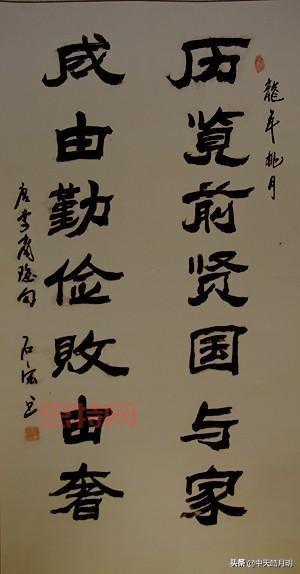 龍年桃月
历览前贤国与家
成由勤俭败由奢
唐李商隐句
石宪
头条@中天皓月明